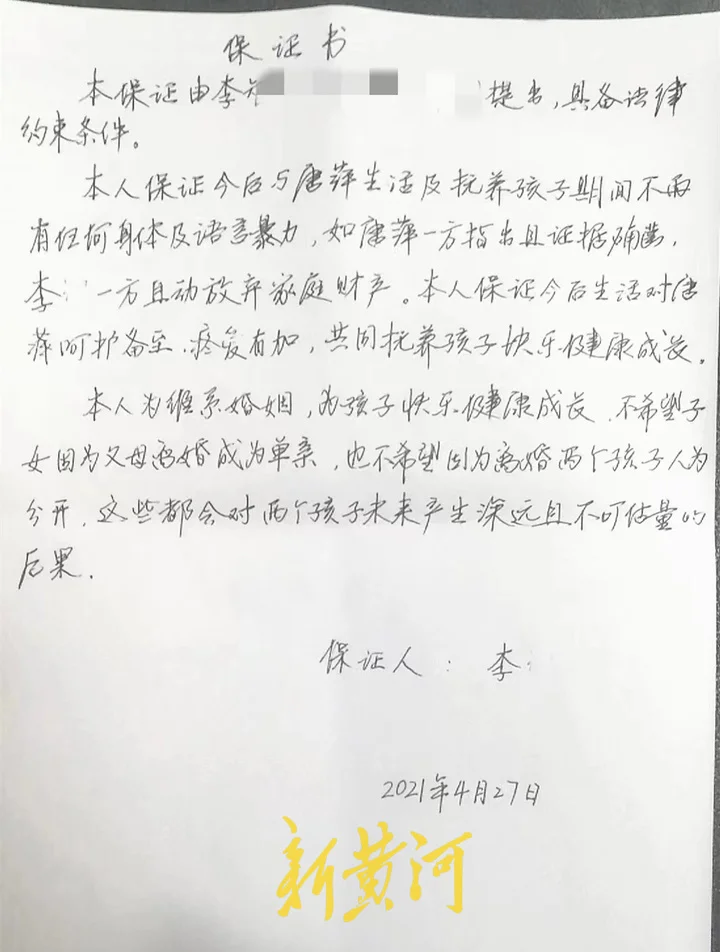 保证书
本保证由李 提出，具备法律
约束条件。
本人保证今后与唐萍生活及抚养孩子期间不再
有任何身体及语言暴力，如唐萍一方指出且证据确凿，
李 一方自动放弃家庭财产。本人保证今后生活对唐
萍呵护备至、疼爱有加，共同抚养孩子快乐健康成长。
本人为维系婚姻，为孩子快乐健康成长、不希望子
女因为父母离婚成为单亲，也不希望因为离婚两个孩子人为
分开，这些都会对两个孩子未来产生深远且不可估量的
后果.
保证人：李
2021年4月27日
新黄河